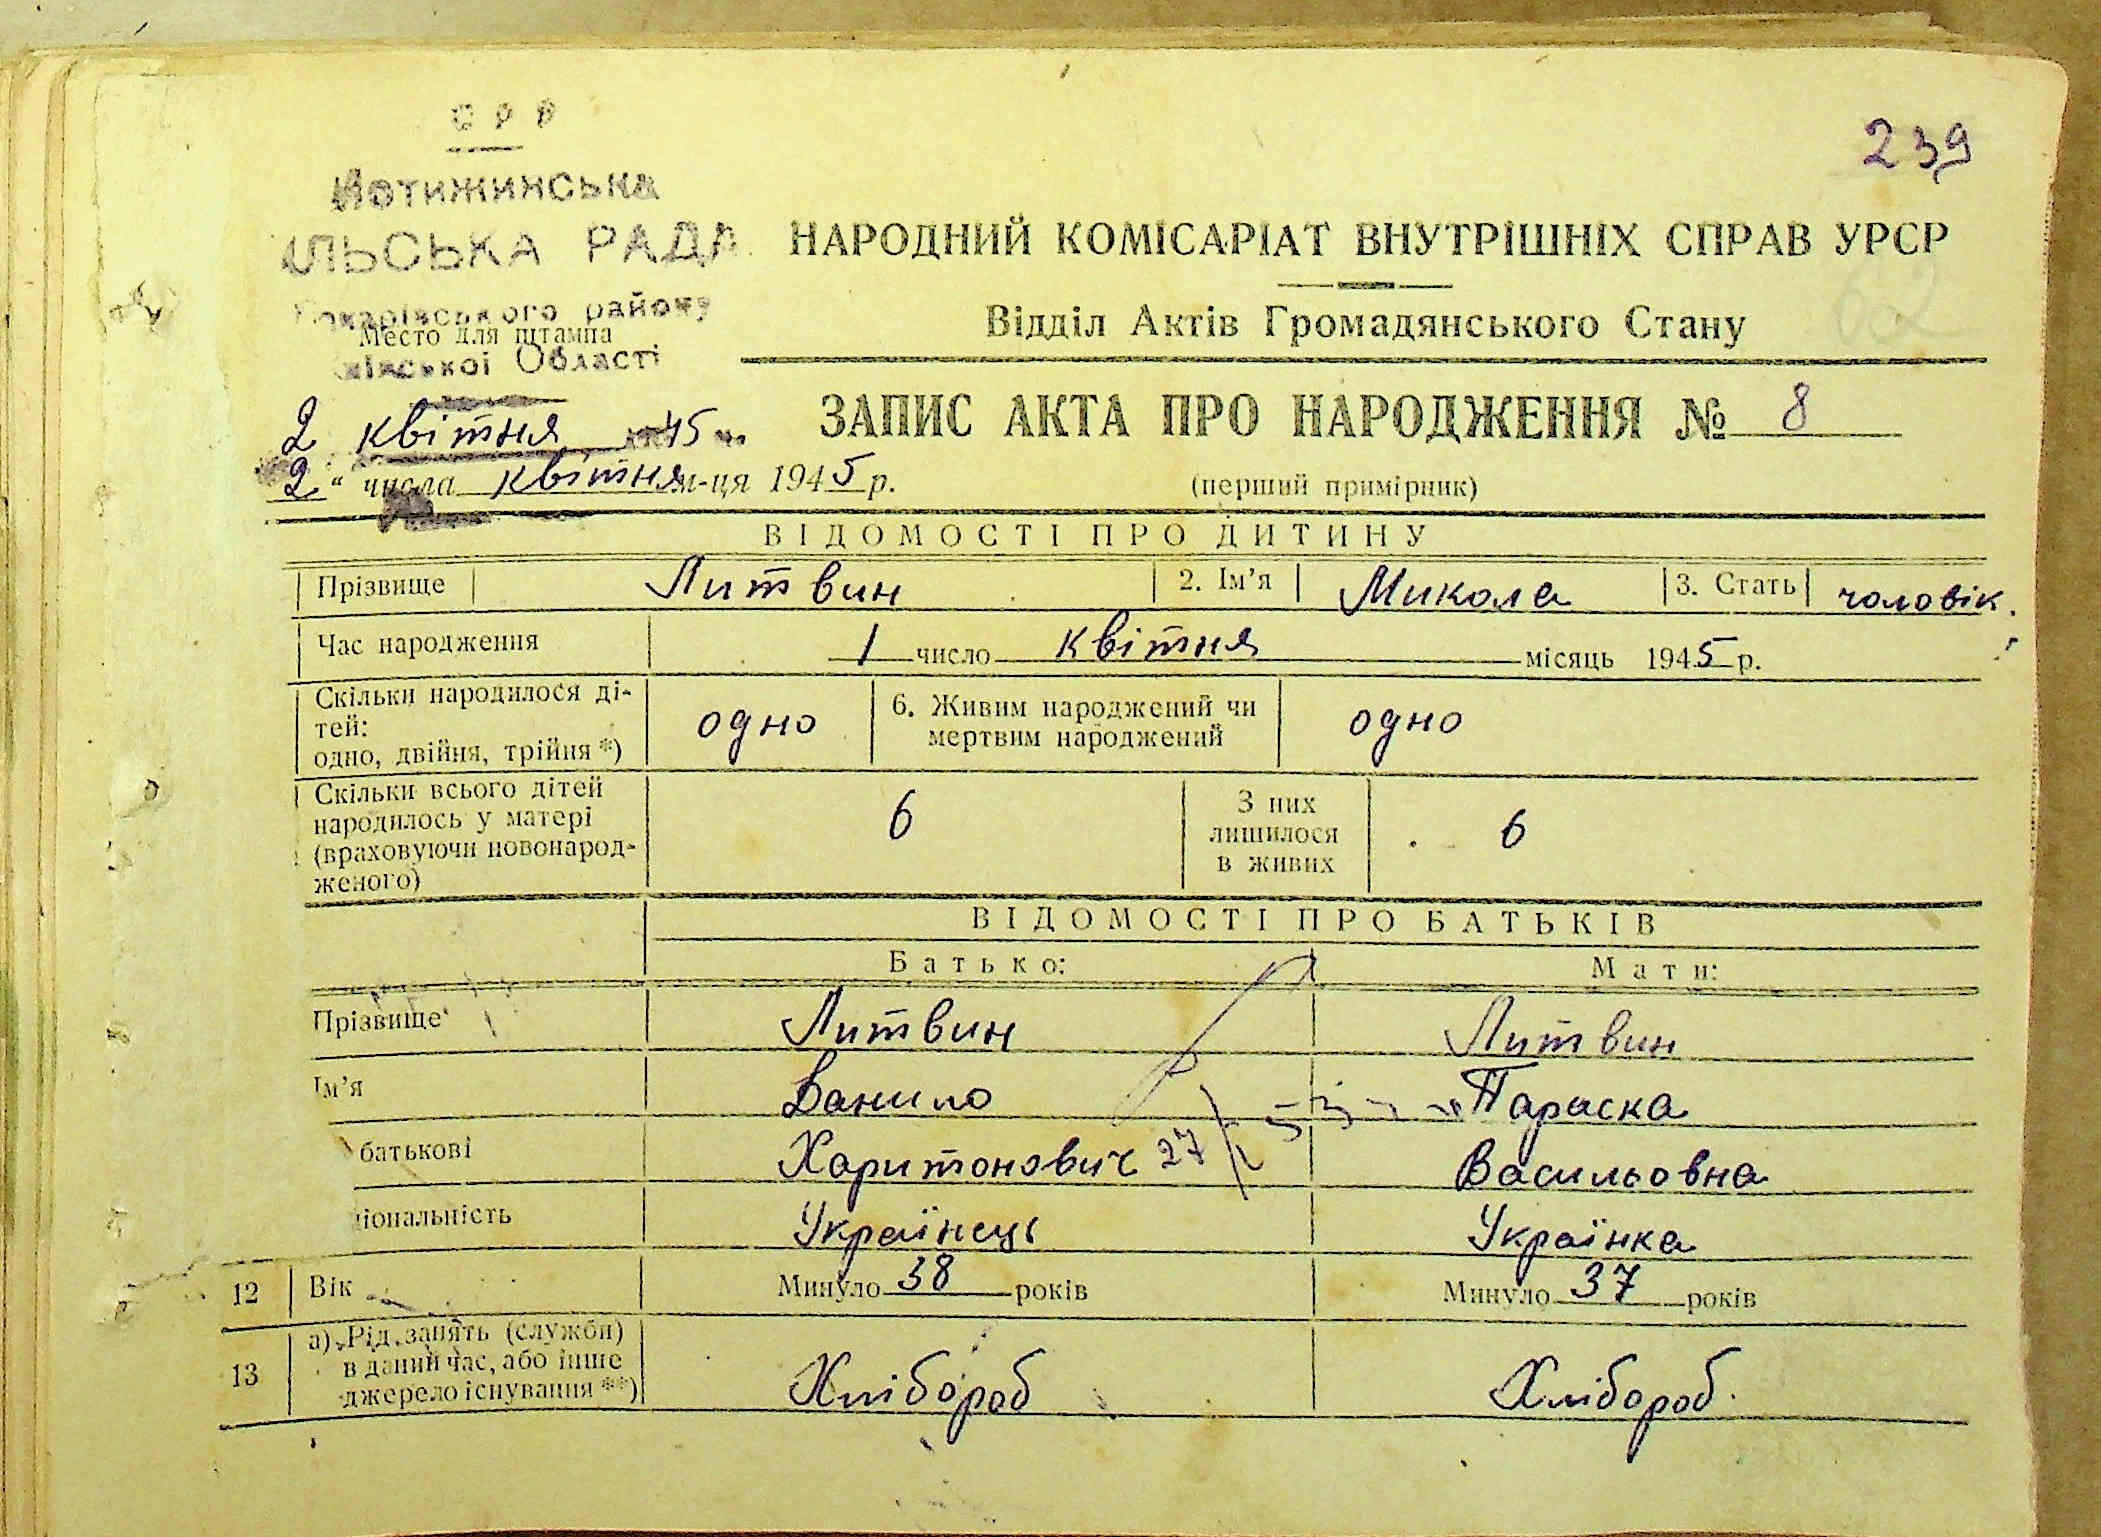 239
С Р Р
Мотижинська
ІЛЬСЬКА РАДА
Макарівського району
Место для штампа
Київської Області
НАРОДНИЙ КОМІСАРІАТ ВНУТРІШНІХ СПРАВ УРСР
62
Відділ Актів Громадянського Стану
ЗАПИС АКТА ПРО НАРОДЖЕННЯ № 8
(перший примірник)
2 квітня 45
2 " числа квітня м-ця 1945 р.
ВІДОМОСТІ ПРО ДИТИНУ
Прізвище Литвин 2. Ім'я Микола 3. Стать чоловік.
Час народження 1 число квітня місяць 1945 р.
Скільки народилося ді-
тей:
одно, двійня, трійня *) одно 6. Живим народжений чи
мертвим народжений одно
Скільки всього дітей
народилось у матері
(враховуючи новонарод-
женого) 6 З них
лишилося
в живих 6
ВІДОМОСТІ ПРО БАТЬКІВ
Батько: Мати:
Прізвище Литвин Литвин
Ім'я Данило Параска
батькові Харитонович 27 Васильовна
ціональність Українець Українка
12 Вік Минуло 38 років Минуло 37 років
13 а) Рід занять (служби)
в даний час, або інше
джерело існування **) Хлібороб Хлібороб.